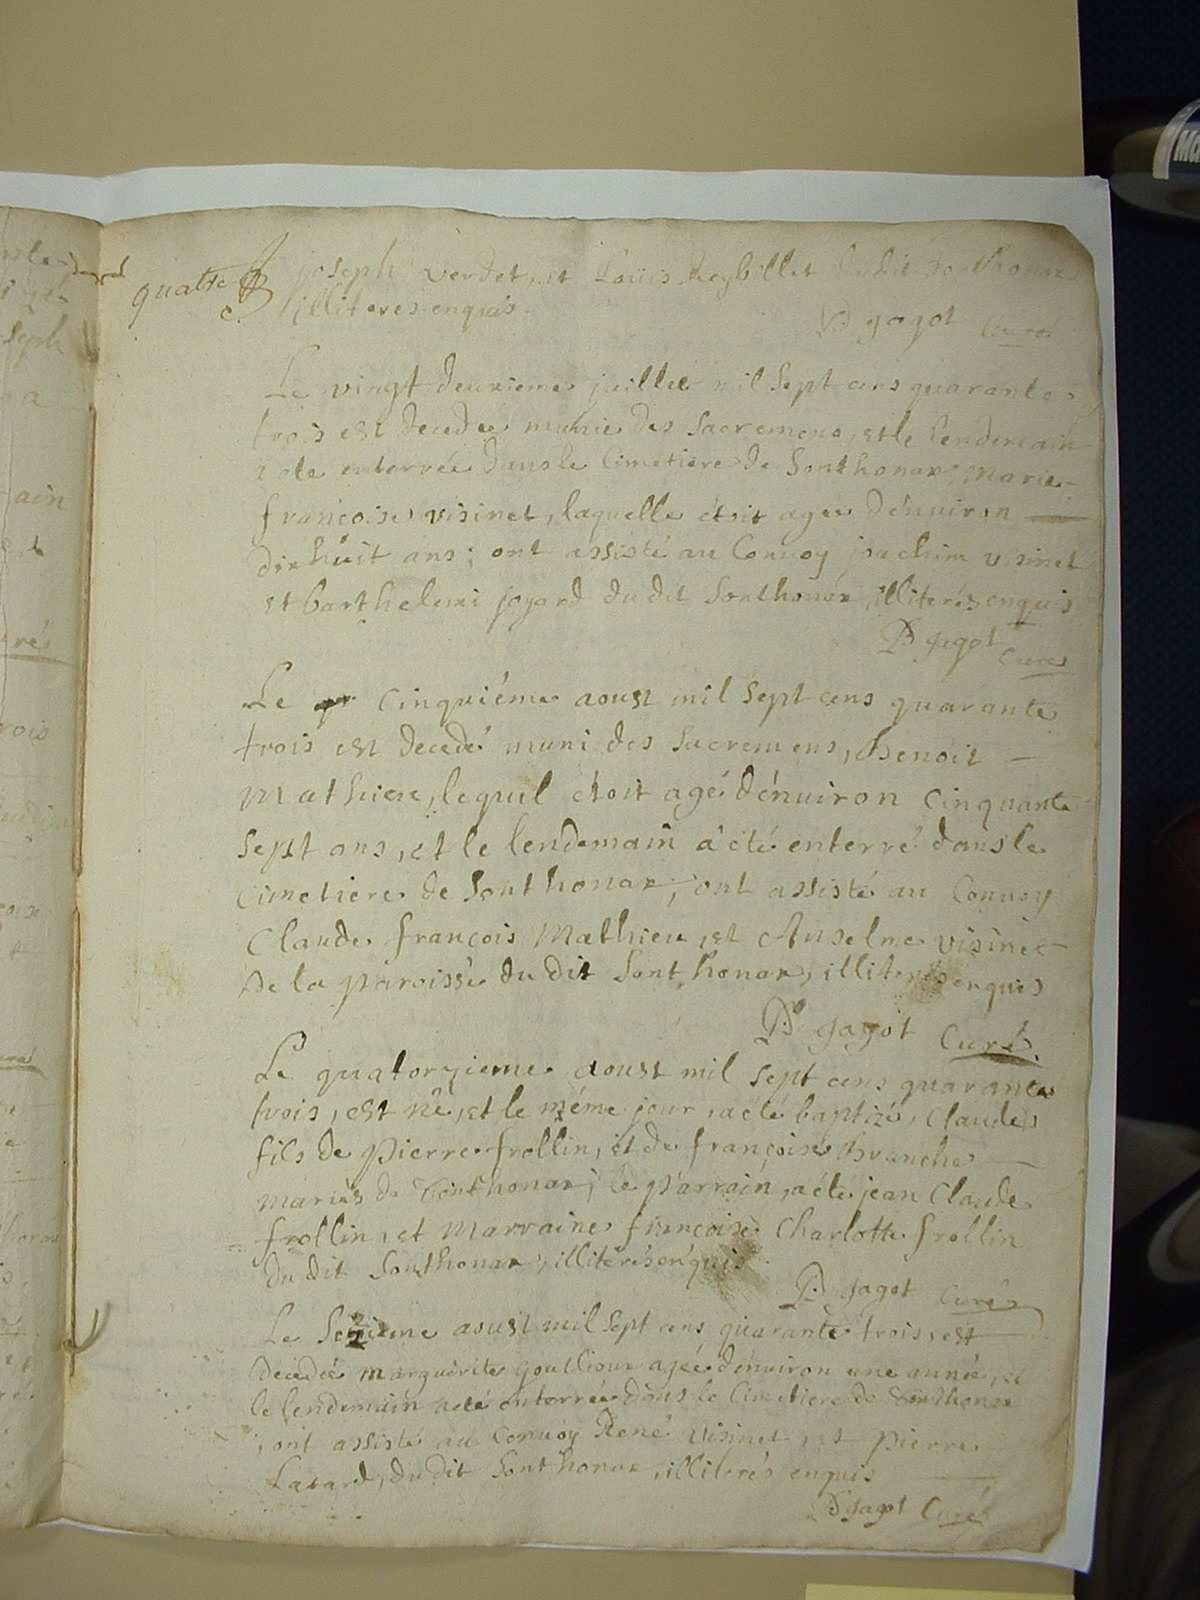 quatre
joseph verdet, et Loüis Reybillet dudit Sonthonax
illiteres enquis.
P. gagot Curé
Le vingt deuxieme juillet mil sept cens quarante
trois est decedée munie des sacremens, et le lendemain
a ete enterrée dans le Cimetiere de Sonthonax, Marie
françoise visinet, laquelle étoit agée d'énuiron
dixhuit ans; ont assisté au Conuoy joachim visinet
et barthelemi joyard du dit Sonthonax, illiterés enquis
P. gagot Curé
Le cinquiéme aoust mil sept cens quarante
trois est decedé muni des sacremens, Benoit
Mathieu, lequel étoit agé d'énuiron cinquante
sept ans, et le lendemain a été enterré dans le
cimetiere de Sonthonax, ont assisté au Conuoy
Claude françois Mathieu, et Anselme visinet
de la paroisse du dit Sonthonax, illiterés enquis
P. gagot Curé
Le quatorzieme aoust mil sept cens quarante
trois, est né, et le méme jour, a été baptizé, Claude
fils de pierre frollin, et de françoise Branche
mariés de Sonthonax, le parrain, a été jean Claude
frollin, et Marraine françoise Charlotte frollin
du dit Sonthonax, illitérés énquis
P. gagot Curé
Le Sezieme aoust mil sept cens quarante trois, est
decedée marguérite goullioux agée d'énuiron une année, et
le lendemain a eté enterrée dans le Cimetiere de Sonthonax
, ont assisté au Conuoy René visinet, et pierre
Lavard, du dit Sonthonax, illiterés enquis
P. gagot Curé